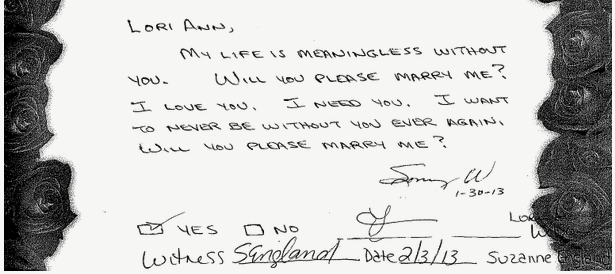 LORI ANN,
MY LIFE IS MEANINGLESS WITHOUT
YOU. WILL YOU PLEASE MARRY ME?
I LOVE YOU. I NEED YOU. I WANT
TO NEVER BE WITHOUT YOU EVER AGAIN.
WILL YOU PLEASE MARRY ME?
Sonny W
1-30-13
YES NO
Witness Date 2/3/13 Suzanne